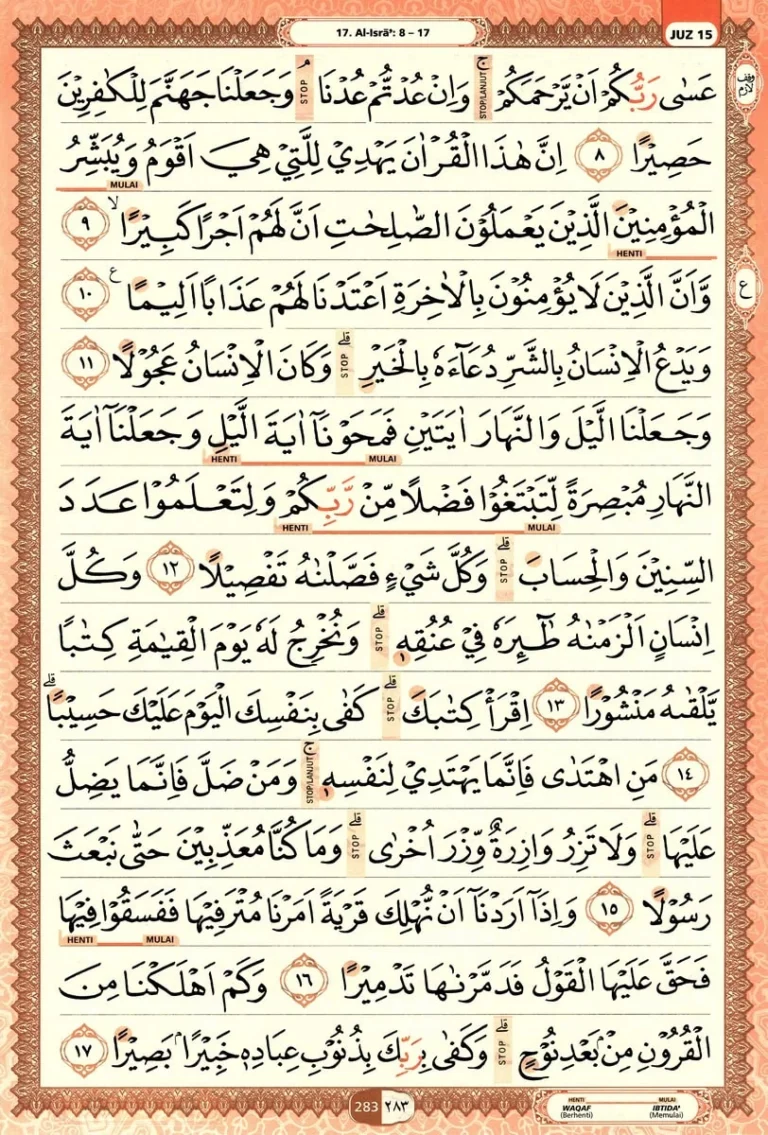 17. Al-Isrā': 8 – 17
JUZ 15
وقف لازم
عَسٰى رَبُّكُمْ اَنْ يَّرْحَمَكُمْ ۚ STOP/LANJUT وَاِنْ عُدْتُّمْ عُدْنَا ۘ STOP وَجَعَلْنَا جَهَنَّمَ لِلْكٰفِرِيْنَ
حَصِيْرًا ٨ اِنَّ هٰذَا الْقُرْاٰنَ يَهْدِيْ لِلَّتِيْ هِيَ اَقْوَمُ وَيُبَشِّرُ
MULAI
الْمُؤْمِنِيْنَ الَّذِيْنَ يَعْمَلُوْنَ الصّٰلِحٰتِ اَنَّ لَهُمْ اَجْرًا كَبِيْرًاۙ ٩
HENTI
وَّاَنَّ الَّذِيْنَ لَا يُؤْمِنُوْنَ بِالْاٰخِرَةِ اَعْتَدْنَا لَهُمْ عَذَابًا اَلِيْمًا ع ١٠
ع
وَيَدْعُ الْاِنْسَانُ بِالشَّرِّ دُعَاۤءَهٗ بِالْخَيْرِ ۗ STOP وَكَانَ الْاِنْسَانُ عَجُوْلًا ١١
وَجَعَلْنَا الَّيْلَ وَالنَّهَارَ اٰيَتَيْنِ فَمَحَوْنَآ اٰيَةَ الَّيْلِ وَجَعَلْنَآ اٰيَةَ
MULAI HENTI
النَّهَارِ مُبْصِرَةً لِّتَبْتَغُوْا فَضْلًا مِّنْ رَّبِّكُمْ وَلِتَعْلَمُوْا عَدَدَ
MULAI HENTI
السِّنِيْنَ وَالْحِسَابَ ۗ STOP وَكُلَّ شَيْءٍ فَصَّلْنٰهُ تَفْصِيْلًا ١٢ وَكُلَّ
اِنْسَانٍ اَلْزَمْنٰهُ طٰۤىِٕرَهٗ فِيْ عُنُقِهٖ ١ ۗ STOP وَنُخْرِجُ لَهٗ يَوْمَ الْقِيٰمَةِ كِتٰبًا
يَّلْقٰىهُ مَنْشُوْرًا ١٣ اِقْرَأْ كِتٰبَكَ ۗ STOP كَفٰى بِنَفْسِكَ الْيَوْمَ عَلَيْكَ حَسِيْبًا ۗ
١٤ مَنِ اهْتَدٰى فَاِنَّمَا يَهْتَدِيْ لِنَفْسِهٖ ١ ۚ STOP/LANJUT وَمَنْ ضَلَّ فَاِنَّمَا يَضِلُّ
عَلَيْهَا ۗ STOP وَلَا تَزِرُ وَازِرَةٌ وِّزْرَ اُخْرٰى ۗ STOP وَمَا كُنَّا مُعَذِّبِيْنَ حَتّٰى نَبْعَثَ
رَسُوْلًا ١٥ وَاِذَآ اَرَدْنَآ اَنْ نُّهْلِكَ قَرْيَةً اَمَرْنَا مُتْرَفِيْهَا فَفَسَقُوْا فِيْهَا
MULAI HENTI
فَحَقَّ عَلَيْهَا الْقَوْلُ فَدَمَّرْنٰهَا تَدْمِيْرًا ١٦ وَكَمْ اَهْلَكْنَا مِنَ
الْقُرُوْنِ مِنْۢ بَعْدِ نُوْحٍ ۗ STOP وَكَفٰى بِرَبِّكَ بِذُنُوْبِ عِبَادِهٖ خَبِيْرًاۢ بَصِيْرًا ١٧
283 ٢٨٣
HENTI MULAI
WAQAF IBTIDA'
(Berhenti) (Memulai)